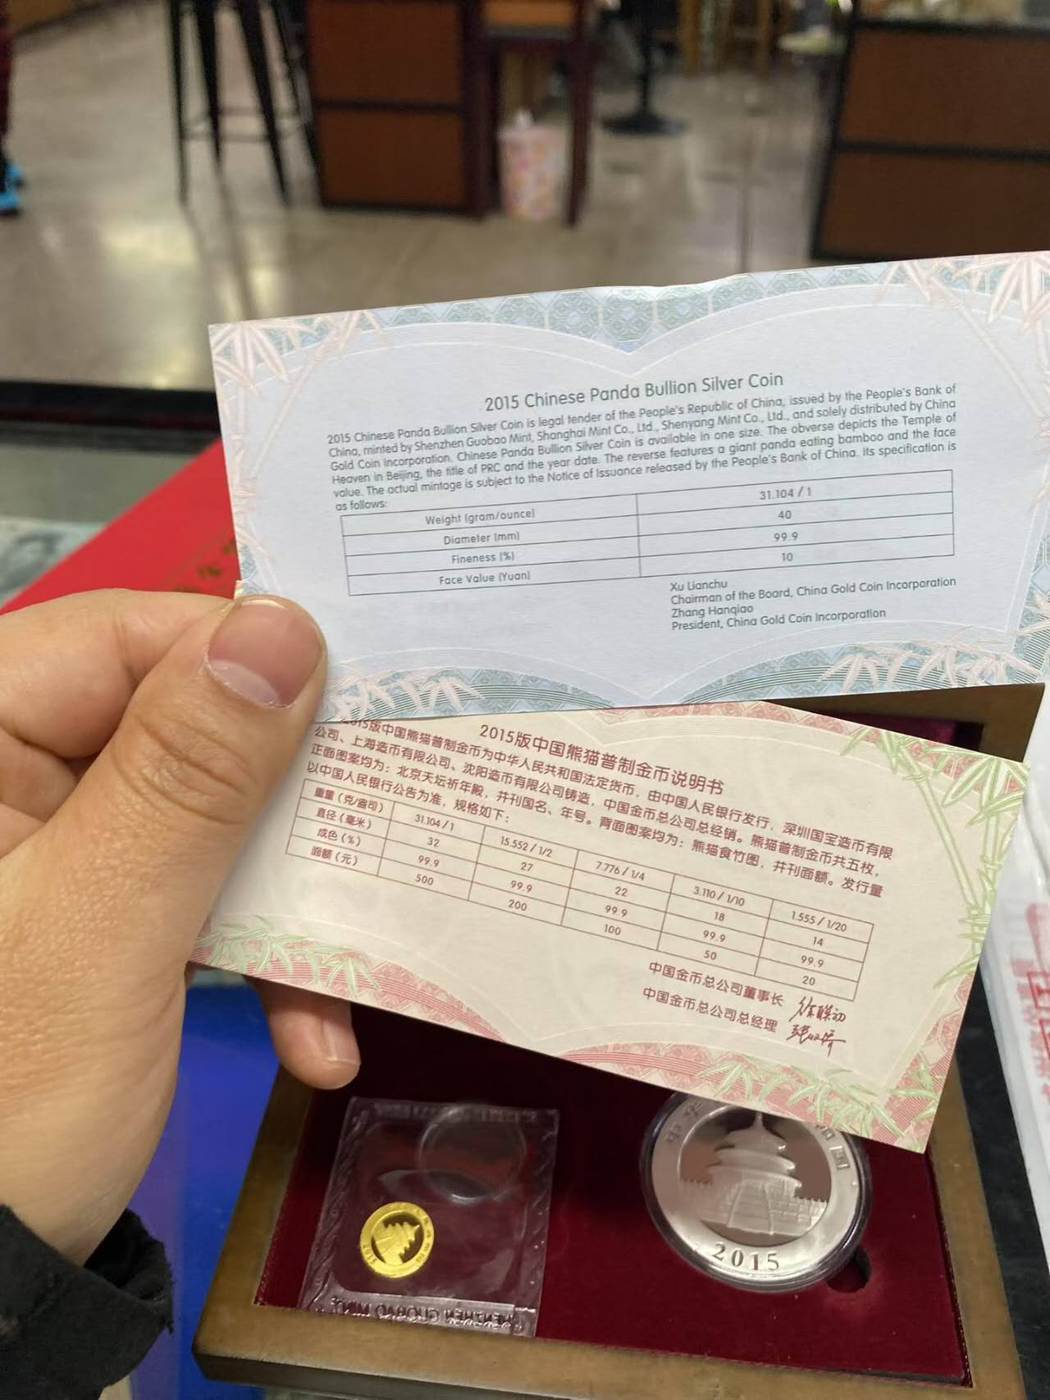 2015 Chinese Panda Bullion Silver Coin
2015 Chinese Panda Bullion Silver Coin is legal tender of the People's Republic of China, issued by the People's Bank of
China, minted by Shenzhen Guobao Mint, Shanghai Mint Co., Ltd., Shenyang Mint Co., Ltd., and solely distributed by China
Gold Coin Incorporation. Chinese Panda Bullion Silver Coin is available in one size. The obverse depicts the Temple of
Heaven in Beijing, the title of PRC and the year date. The reverse features a giant panda eating bamboo and the face
value. The actual mintage is subject to the Notice of Issuance released by the People's Bank of China. Its specification is
as follows:
Weight (gram/ounce) 31.104 / 1
Diameter (mm) 40
Fineness (%) 99.9
Face Value (Yuan) 10
Xu Lianchu
Chairman of the Board, China Gold Coin Incorporation
Zhang Hanqiao
President, China Gold Coin Incorporation
2015版中国熊猫普制金币说明书
2015版中国熊猫普制金币为中华人民共和国法定货币，由中国人民银行发行，深圳国宝造币有限
公司、上海造币有限公司、沈阳造币有限公司铸造，中国金币总公司总经销。熊猫普制金币共五枚，
正面图案均为：北京天坛祈年殿，并刊国名、年号。背面图案均为：熊猫食竹图，并刊面额。发行量
以中国人民银行公告为准，规格如下：
重量（克/盎司） 31.104 / 1 15.552 / 1/2 7.776 / 1/4 3.110 / 1/10 1.555 / 1/20
直径（毫米） 32 27 22 18 14
成色（%） 99.9 99.9 99.9 99.9 99.9
面额（元） 500 200 100 50 20
中国金币总公司董事长
中国金币总公司总经理
2015
SHENZHEN GUOBAO MINT